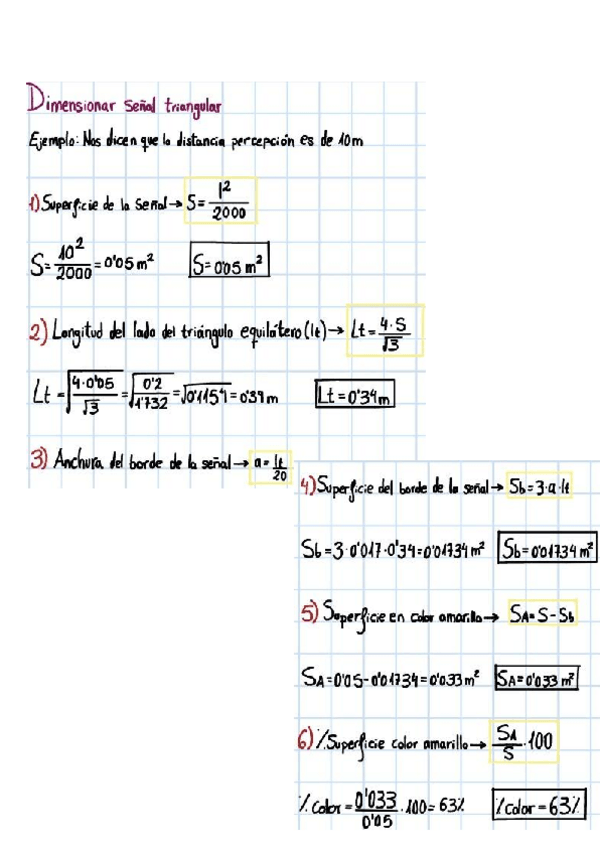 Dimensionar señal triangular
Ejemplo: Nos dicen que la distancia percepción es de 10m
1) Superficie de la señal → S = l²/2000
S = 10²/2000 = 0'05 m² S = 0'05 m²
2) Longitud del lado del triángulo equilátero (lt) → Lt = 4·S/√3
Lt = √(4·0'05/√3) = √(0'2/1'732) = √0'1154 = 0'34 m Lt = 0'34 m
3) Anchura del borde de la señal → a = lt/20
4) Superficie del borde de la señal → Sb = 3·a·lt
Sb = 3·0'017·0'34 = 0'01734 m² Sb = 0'01734 m²
5) Superficie en color amarillo → SA = S - Sb
SA = 0'05 - 0'01734 = 0'033 m² SA = 0'033 m²
6) % Superficie color amarillo → SA/S · 100
% Color = 0'033/0'05 · 100 = 63% % color = 63%